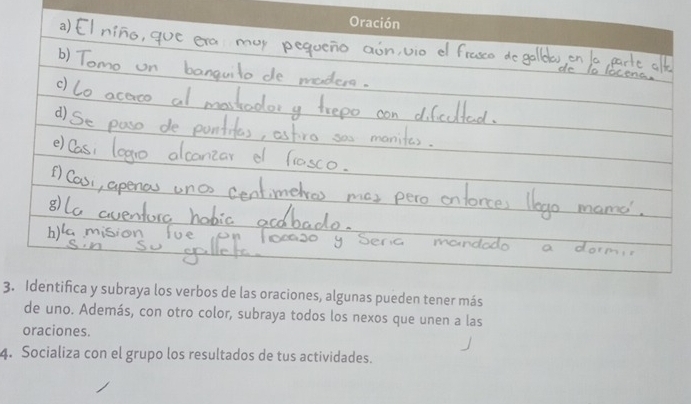 Oración
a) El niño, que era muy pequeño aún, vio el frasco de galletas en la parte alta
de la lacena.
b) Tomo un banquito de madera.
c) Lo acerco al mostrador y trepo con dificultad.
d) Se puso de puntitas, estiro sus manitas.
e) Casi logro alcanzar el frasco.
f) Casi, apenas unos centimetros mas pero entonces llego mamá.
g) La aventura habia acabado.
h) la mision fue un fracaso y seria mandado a dormir
sin su galleta.
3. Identifica y subraya los verbos de las oraciones, algunas pueden tener más
de uno. Además, con otro color, subraya todos los nexos que unen a las
oraciones.
4. Socializa con el grupo los resultados de tus actividades.